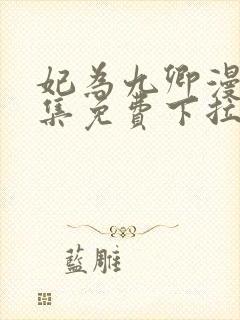 妃為九卿漫
集免費下拉
藍雕